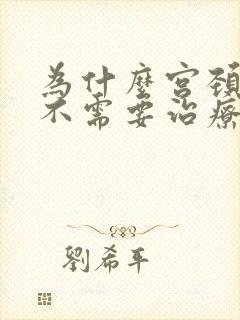 為什麼宮頸
不需要治療
劉希平